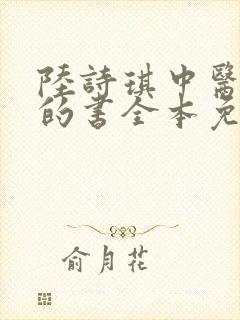 陸詩琪中醫
的書全本免
俞月花